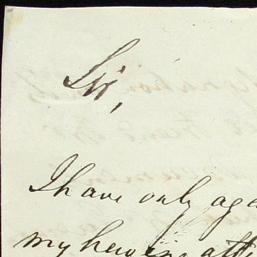 Sir,
I have only aga
my having att